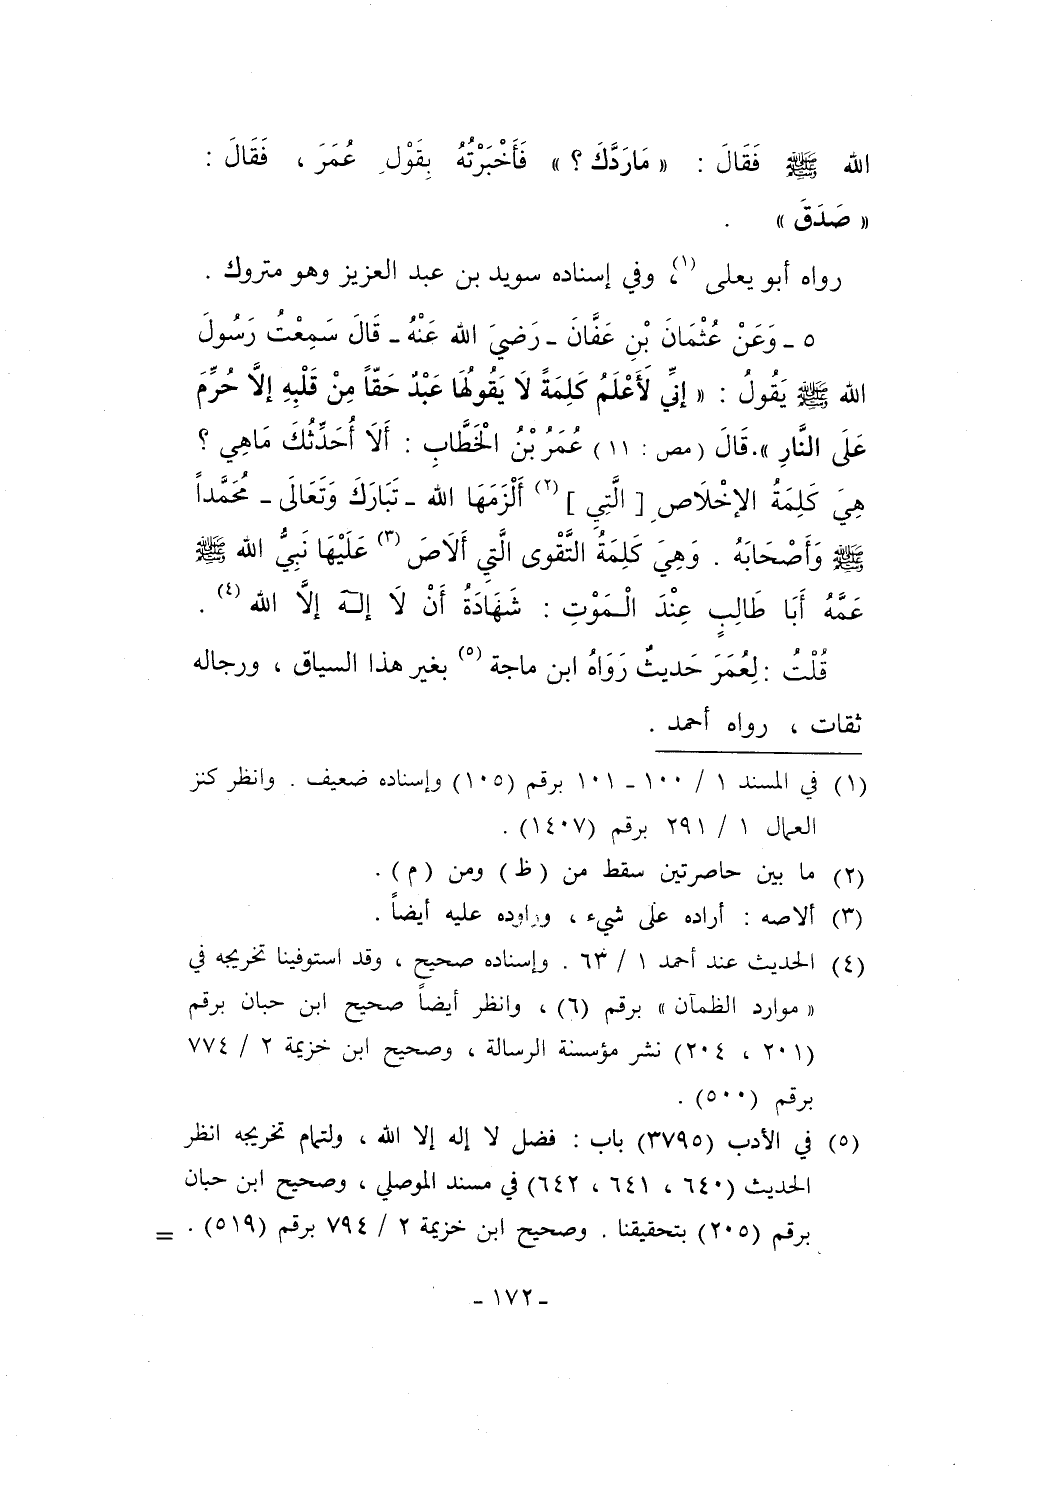 الله ﷺ فَقَالَ : « مَارَدَّكَ ؟ » فَأَخْبَرْتُهُ بِقَوْلِ عُمَرَ ، فَقَالَ :
« صَدَقَ » .
رواه أبو يعلى (١)، وفي إسناده سويد بن عبد العزيز وهو متروك .
٥ ـ وَعَنْ عُثْمَانَ بْنِ عَفَّانَ ـ رَضِيَ الله عَنْهُ ـ قَالَ سَمِعْتُ رَسُولَ
الله ﷺ يَقُولُ : « إنِّي لَأَعْلَمُ كَلِمَةً لَا يَقُولُهَا عَبْدٌ حَقّاً مِنْ قَلْبِهِ إلَّا حُرِّمَ
عَلَى النَّارِ ». قَالَ ( مص : ١١ ) عُمَرُ بْنُ الْخَطَّابِ : أَلَا أُحَدِّثُكَ مَاهِي ؟
هِيَ كَلِمَةُ الإخْلَاصِ [ الَّتِي ] (٢) أَلْزَمَهَا الله ـ تَبَارَكَ وَتَعَالَى ـ مُحَمَّداً
ﷺ وَأَصْحَابَهُ . وَهِيَ كَلِمَةُ التَّقْوى الَّتِي أَلَاصَ (٣) عَلَيْهَا نَبِيُّ الله ﷺ
عَمَّهُ أَبَا طَالِبٍ عِنْدَ الْمَوْتِ : شَهَادَةُ أَنْ لَا إلـهَ إلَّا الله (٤) .
قُلْتُ : لِعُمَرَ حَديثٌ رَوَاهُ ابن ماجة (٥) بغير هذا السياق ، ورجاله
ثقات ، رواه أحمد .
(١) في المسند ١ / ١٠٠ ـ ١٠١ برقم (١٠٥) وإسناده ضعيف . وانظر كنز
العمال ١ / ٢٩١ برقم (١٤٠٧) .
(٢) ما بين حاصرتين سقط من ( ظ ) ومن ( م ) .
(٣) ألاصه : أراده على شيء ، وراوده عليه أيضاً .
(٤) الحديث عند أحمد ١ / ٦٣ . وإسناده صحيح ، وقد استوفينا تخريجه في
« موارد الظمآن » برقم (٦) ، وانظر أيضاً صحيح ابن حبان برقم
(٢٠١ ، ٢٠٤) نشر مؤسسة الرسالة ، وصحيح ابن خزيمة ٢ / ٧٧٤
برقم (٥٠٠) .
(٥) في الأدب (٣٧٩٥) باب : فضل لا إله إلا الله ، ولتمام تخريجه انظر
الحديث (٦٤٠ ، ٦٤١ ، ٦٤٢) في مسند الموصلي ، وصحيح ابن حبان
برقم (٢٠٥) بتحقيقنا . وصحيح ابن خزيمة ٢ / ٧٩٤ برقم (٥١٩) . =
ـ ١٧٢ ـ